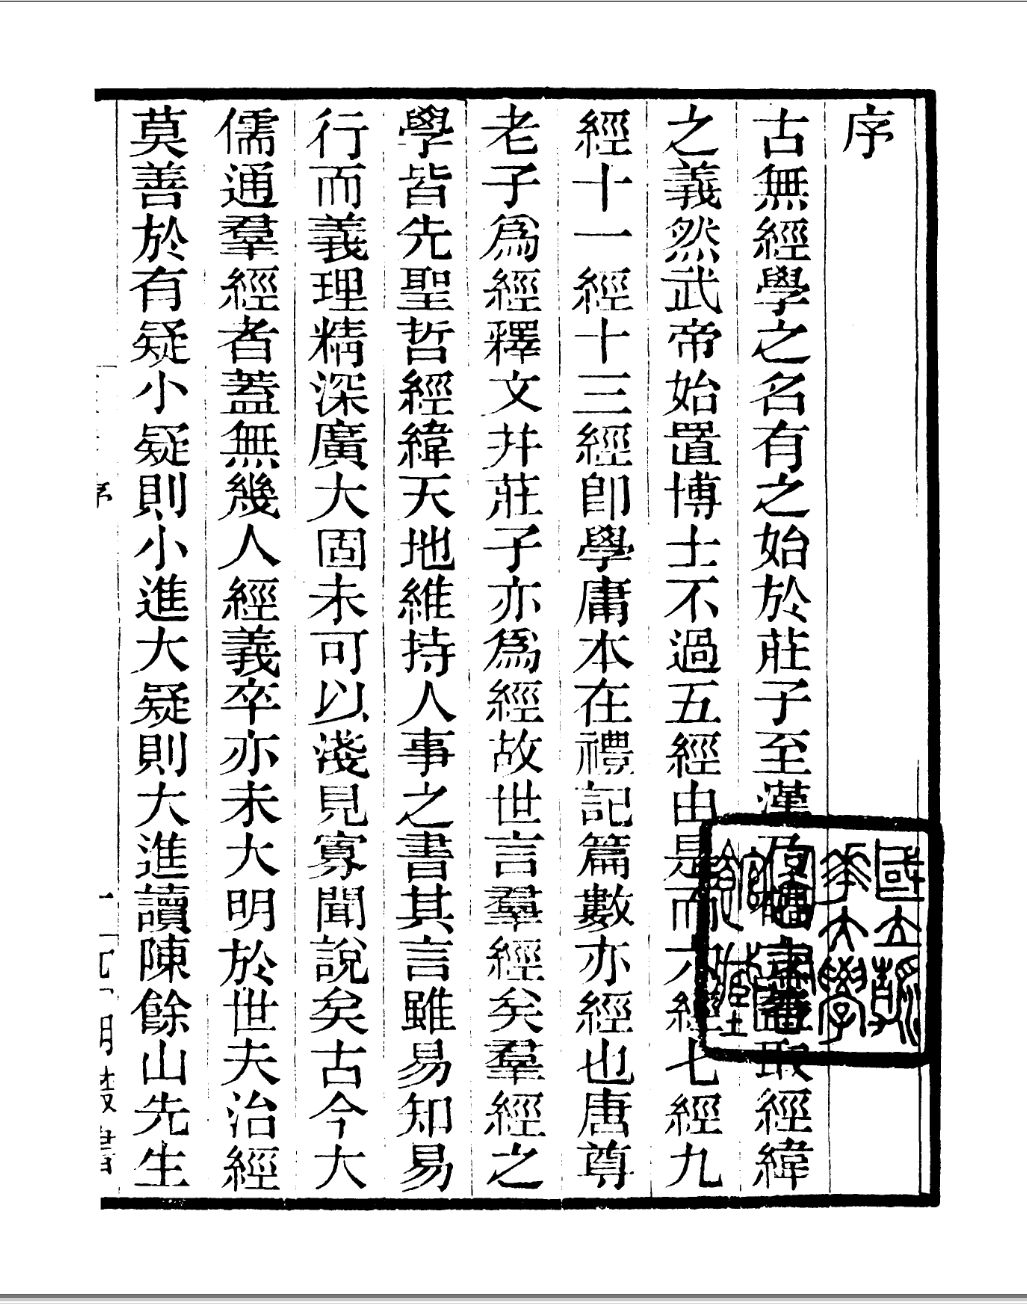 序
古無經學之名有之始於莊子至漢取經緯
之義然武帝始置博士不過五經由是而六經七經九
經十一經十三經卽學庸本在禮記篇數亦經也唐尊
老子爲經釋文幷莊子亦爲經故世言羣經矣羣經之
學皆先聖哲經緯天地維持人事之書其言雖易知易
行而義理精深廣大固未可以淺見寡聞說矣古今大
儒通羣經者蓋無幾人經義卒亦未大明於世夫治經
莫善於有疑小疑則小進大疑則大進讀陳餘山先生
序
一
四明叢書
國立清
華大學
圖書
館藏